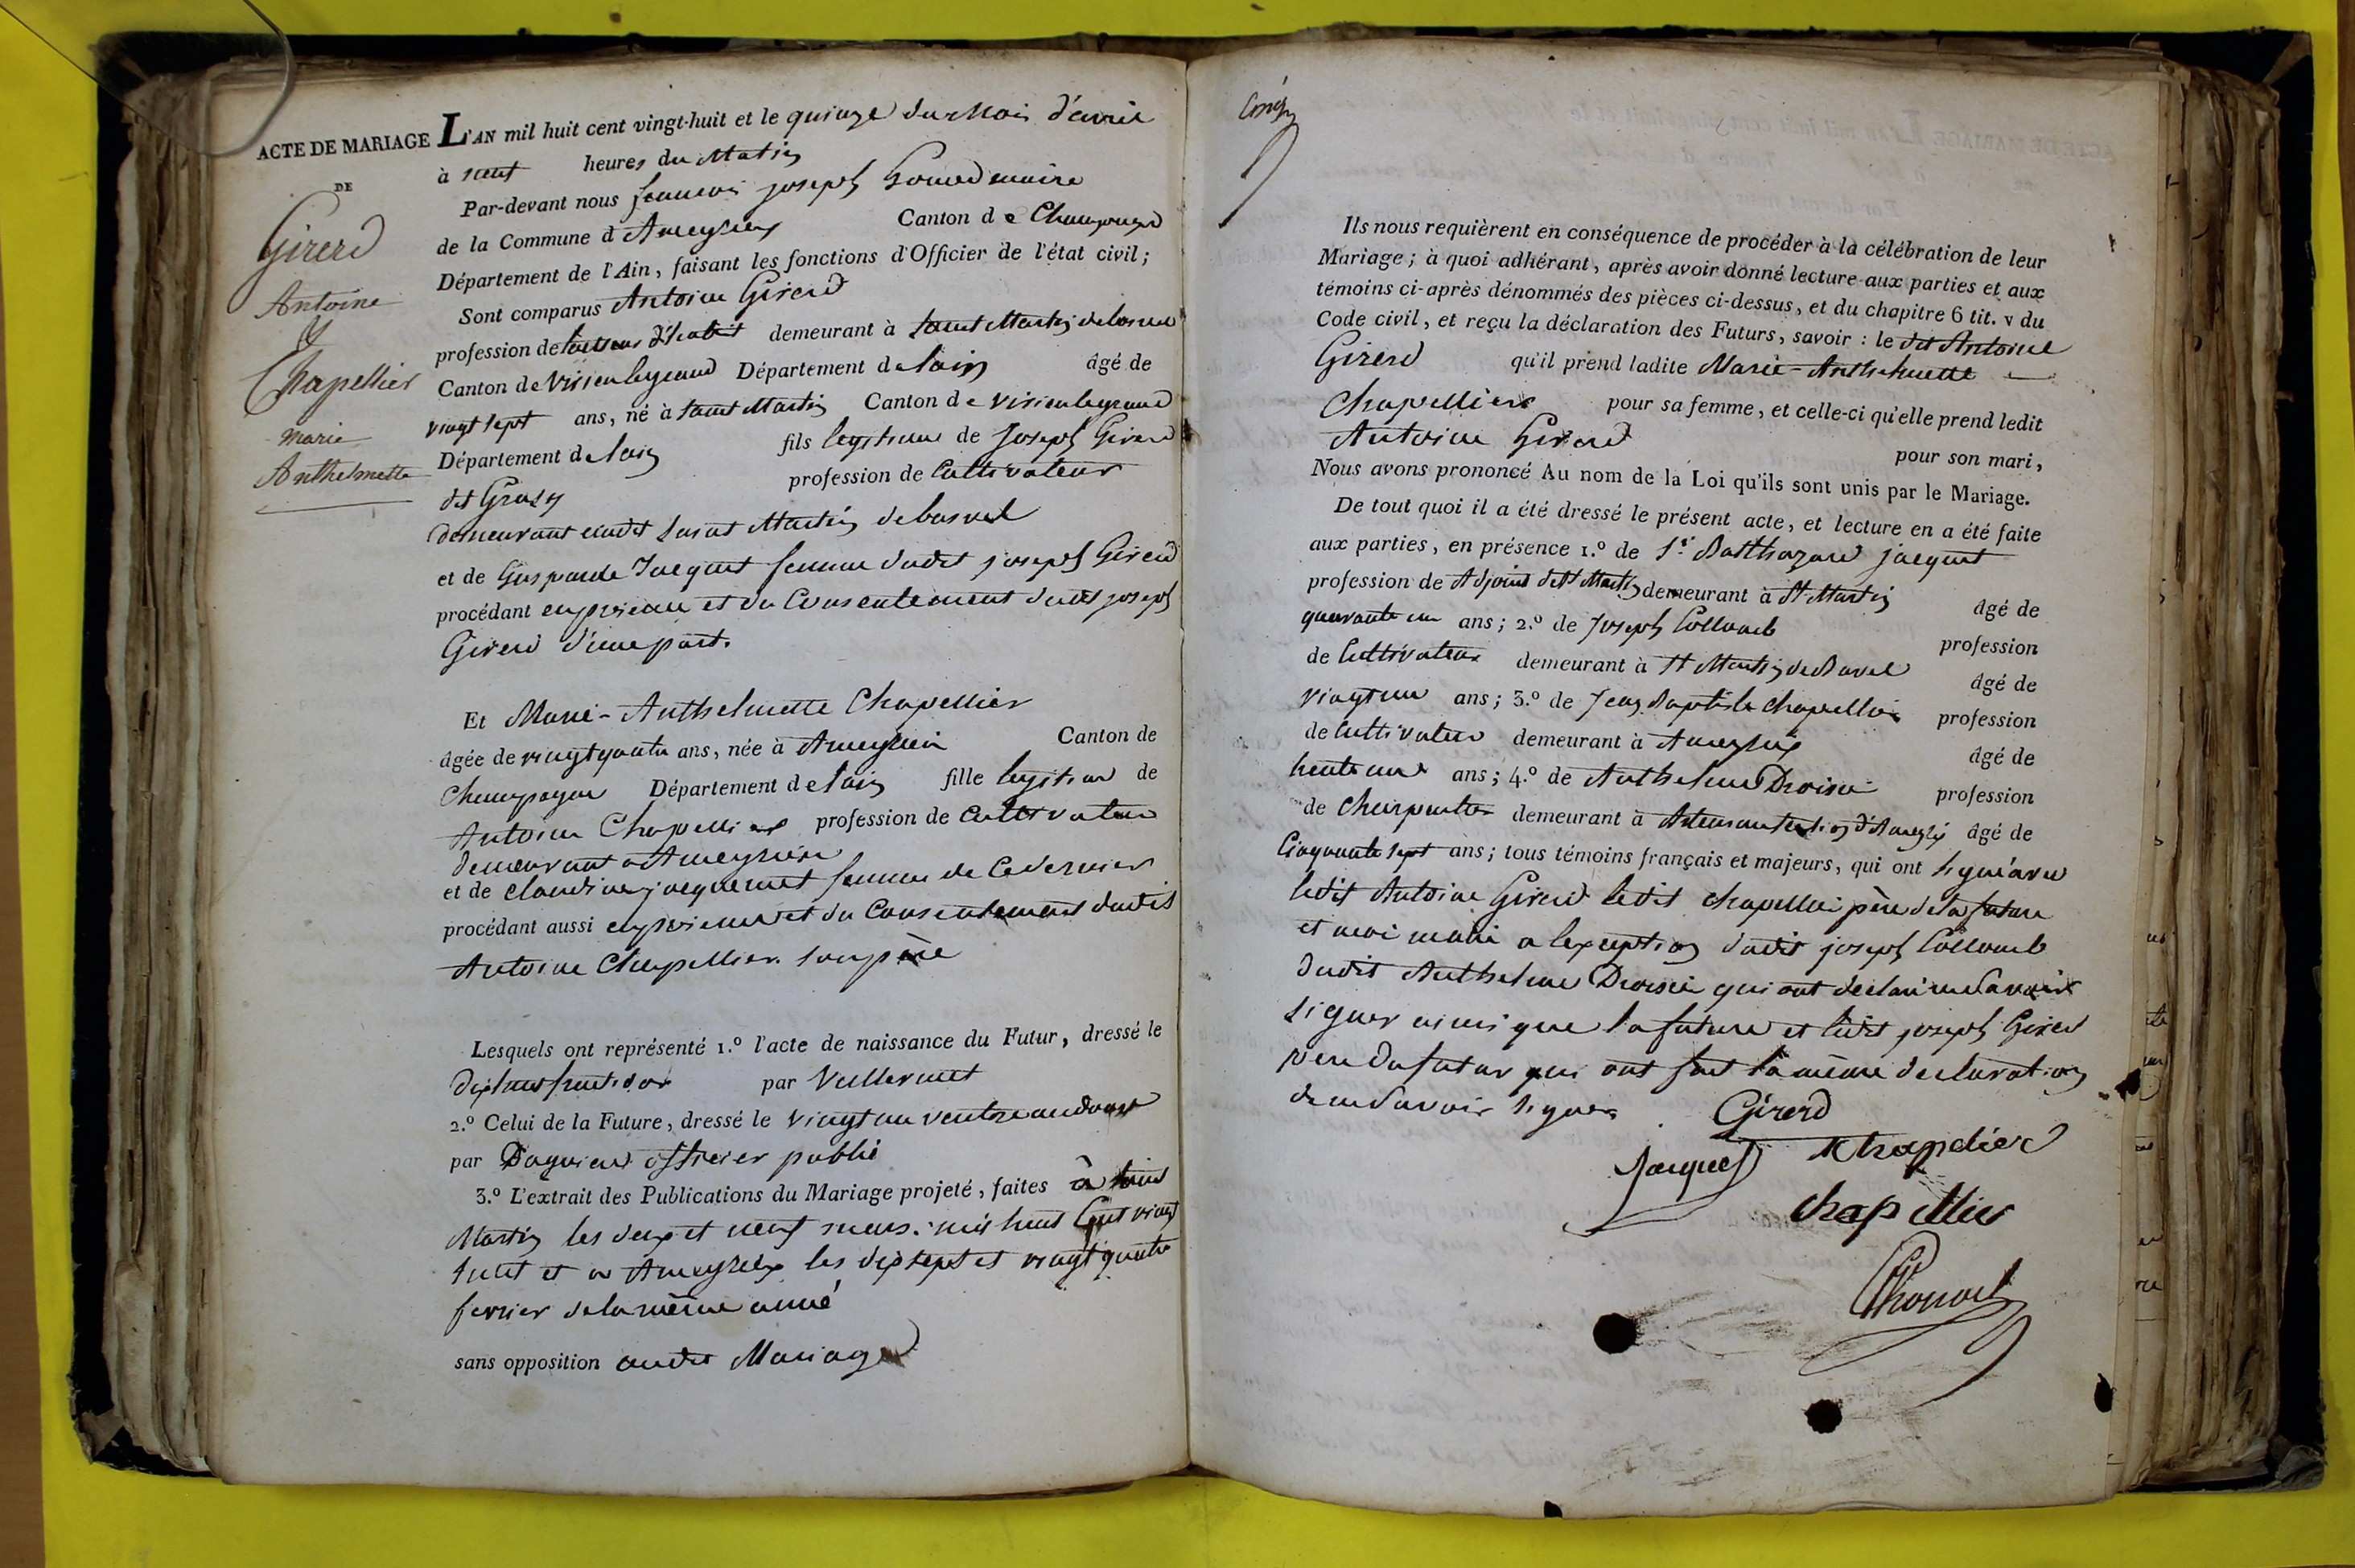 ACTE DE MARIAGE
DE
Girerd
Antoine
&
Chapellier
marie
Anthelmette
L'AN mil huit cent vingt-huit et le quinze du Mois d'avril
à neuf heures du Matin
Par-devant nous francois joseph maire
de la Commune d Ameyzieu Canton de Champagne
Département de l'Ain, faisant les fonctions d'Officier de l'état civil;
Sont comparus Antoine Girerd
profession de demeurant à saint Martin de
Canton de Virieu legrand Département de lain âgé de
vingt sept ans, né à saint Martin Canton de virieu legrand
Département de lain fils legitime de Joseph Girerd
dit profession de Cultivateur
demeurant audit saint Martin debavel
et de Gasparde Jacquet femme dudit joseph Girerd
procédant et du Consentement dudit joseph
Girerd d'une part.
Et Marie-Anthelmette Chapellier
âgée de vingt quatre ans, née à Ameyzieu Canton de
Champagne Département de lain fille legitime de
Antoine Chapellier profession de Cultivateur
demeurant a Ameyzieu
et de claudine jacquemet femme de Ce dernier
procédant aussi et du Consentement dudit
Antoine Chapellier son père
Lesquels ont représenté 1.° l'acte de naissance du Futur, dressé le
par Vuillermet
2.° Celui de la Future, dressé le vingt un ventose an douze
par officier public
3.° L'extrait des Publications du Mariage projeté, faites à saint
Martin les deux et neuf mars mil huit Cent vingt
huit et a Ameyzieu les dix sept et vingt quatre
fevrier de la même année
sans opposition audit Mariage
Ils nous requièrent en conséquence de procéder à la célébration de leur
Mariage; à quoi adhérant, après avoir donné lecture aux parties et aux
témoins ci-après dénommés des pièces ci-dessus, et du chapitre 6 tit. v du
Code civil, et reçu la déclaration des Futurs, savoir: le dit Antoine
Girerd qu'il prend ladite Marie-Anthelmette
Chapellier pour sa femme, et celle-ci qu'elle prend ledit
Antoine Girerd pour son mari,
Nous avons prononcé Au nom de la Loi qu'ils sont unis par le Mariage.
De tout quoi il a été dressé le présent acte, et lecture en a été faite
aux parties, en présence 1.° de Sr. Balthazard jacquet
profession de Adjoint de St Martin demeurant à St Martin âgé de
quarante un ans; 2.° de Joseph Collomb profession
de Cultivateur demeurant à St Martin de Bavel âgé de
vingt un ans; 3.° de Jean Baptiste Chapellier profession
de Cultivateur demeurant à Ameyzieu âgé de
trente un ans; 4.° de Anthelme Droisie profession
de Charpentier demeurant à d'Ameyzieu âgé de
Cinquante sept ans; tous témoins français et majeurs, qui ont signé avec
ledit Antoine Girerd ledit chapellier père de la future
et moi maire a lexception dudit joseph Collomb
dudit Anthelme Droisie qui ont declaré ne Savoir
signer ainsi que la future et ledit joseph Girerd
pere du futur qui ont fait la même declaration
de ne Savoir signer
Girerd
Jacquet
chapellier